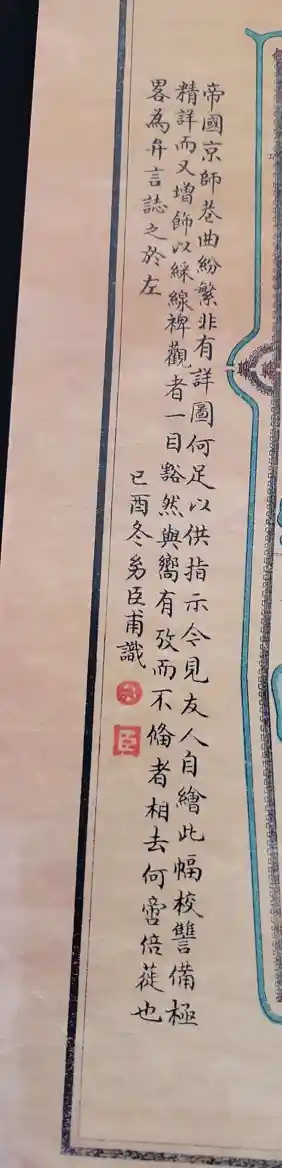 帝國京師巷曲紛繁非有詳圖何足以供指示今見友人自繪此幅校讐備極
精詳而又增飾以綵線裨觀者一目豁然與嚮有攷而不偹者相去何啻倍蓰也
畧為弁言誌之於左
已酉冬芴臣甫識
臣